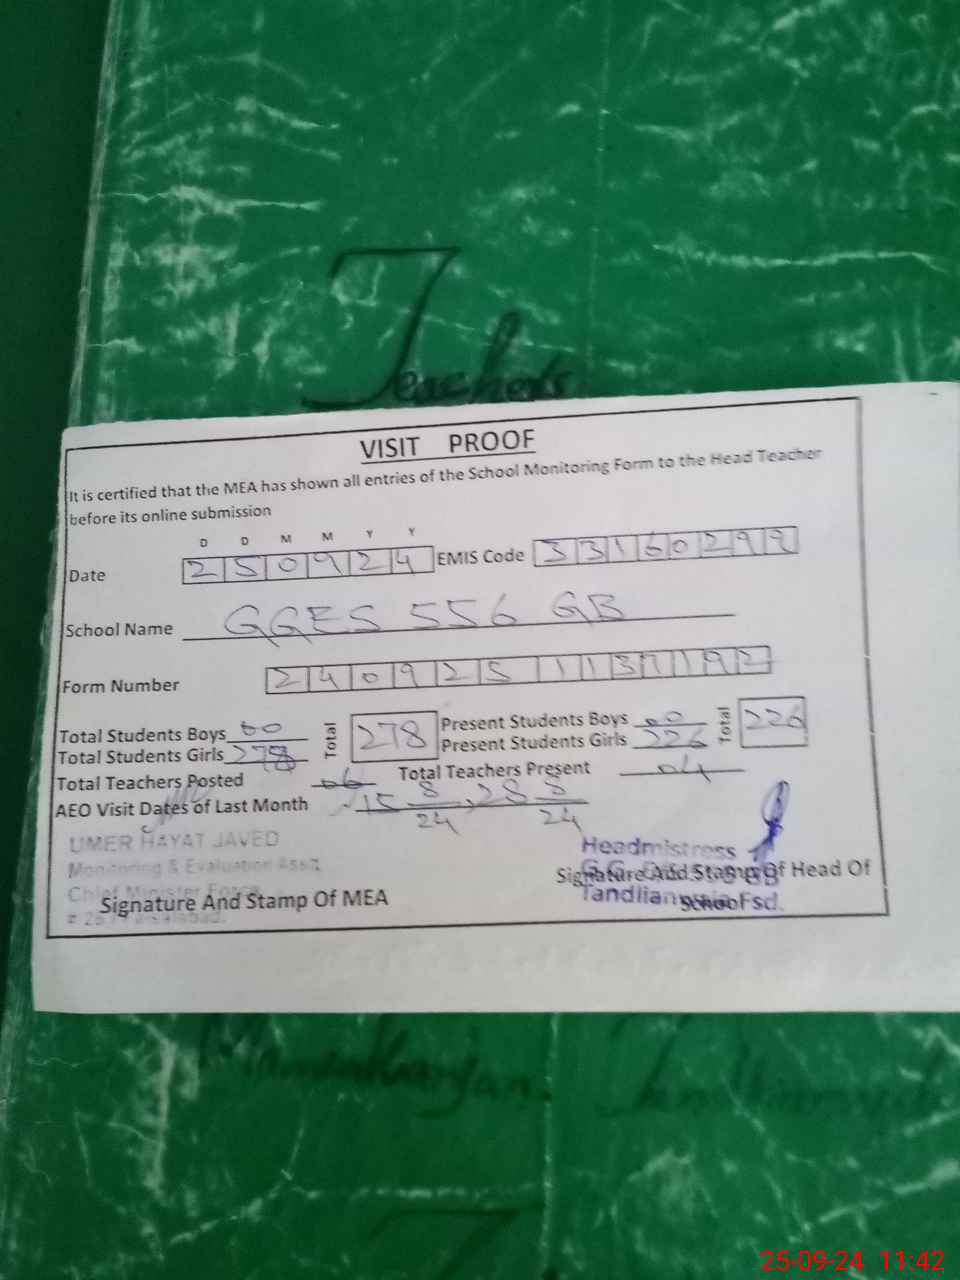 Teachers
VISIT PROOF
It is certified that the MEA has shown all entries of the School Monitoring Form to the Head Teacher
before its online submission
D D M M Y Y
Date 250924 EMIS Code 33160299
School Name GGES 556 GB
Form Number 2409251137192
Total Students Boys 00 Total 278 Present Students Boys 00 Total 226
Total Students Girls 278 Present Students Girls 226
Total Teachers Posted 06 Total Teachers Present 04
AEO Visit Dates of Last Month 15 8/24, 28 8/24
UMER HAYAT JAVED
Monitoring & Evaluation Asst.
Chief Minister Force
Signature And Stamp Of MEA
Headmistress
Signature And Stamp Of Head Of
School
Tandlianwala Fsd.
25-09-24 11:42